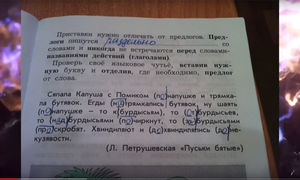 Приставки нужно отличать от предлогов. Пред-
логи пишутся раздельно со
словами и никогда не встречаются перед словами-
названиями действий (глаголами).
Проверь своё языковое чутьё, вставив нуж-
ную букву и отделив, где необходимо, предлог
от слова.
Сяпала Калуша с Помиком (по)напушке и трямка-
ла бутявок. Егды (на)трямкались бутявок, ну шаять
(по)напушке – то к(бурдысьям), то (от)бурдысьев,
то (над)бурдысьями (по)чиркнут, то (за)бурдысьями
(про)скробят. Хвиндиляют и (до)хвиндилялись (до)не-
кузявости.
(Л. Петрушевская «Пуськи бятые»)